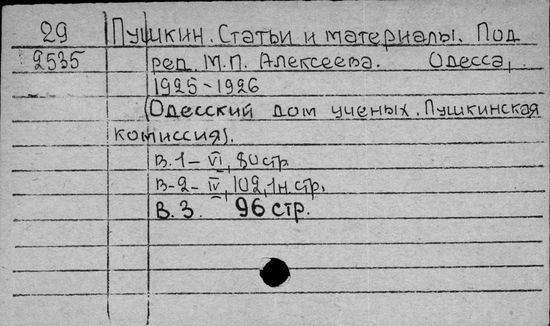 29 Пушкин. Статьи и материалы. Под
2535 ред. М.П. Алексеева. Одесса,
1925-1926
(Одесский дом ученых. Пушкинская
комиссия).
В.1- VI, 80 стр.
В-2- IV, 102, 1 н. стр.
В. 3. 96 стр.